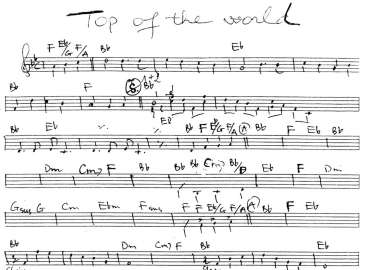 Top of the world
F Eb/G F/A Bb Eb
Bb F Bb
Ep
Bb Eb % % Bb F F Eb/G F/A A Bb F Eb
Dm Cm7 F Bb Bb Bb Cm7 Bb/D Eb F Dm
Gsus G Cm Ebm Fsus F F Eb/G F/A A Bb F Eb
Bb Dm Cm7 F Bb Eb